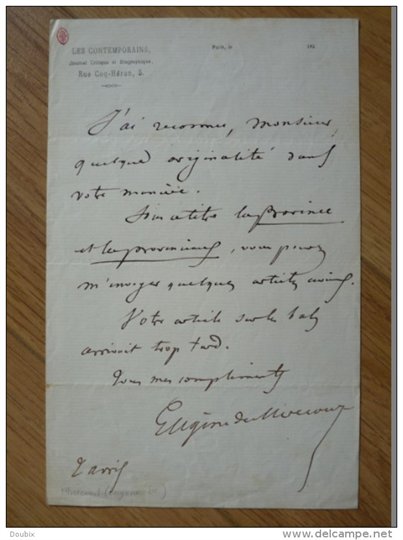 LES CONTEMPORAINS,
Journal Critique et Biographique,
Rue Coq-Héron, 5.
Paris, le 185
J'ai reconnu, Monsieur,
quelque originalité dans
votre manière.
Sous ce titre la Province
et les provinciaux, vous pouvez
m'envoyer quelques articles
Votre article sur les bals
arrivait trop tard.
Tous mes compliments
Eugène de Mirecourt
2 avril
Mirecourt (Eugène de)
Doubix
delcampe.net